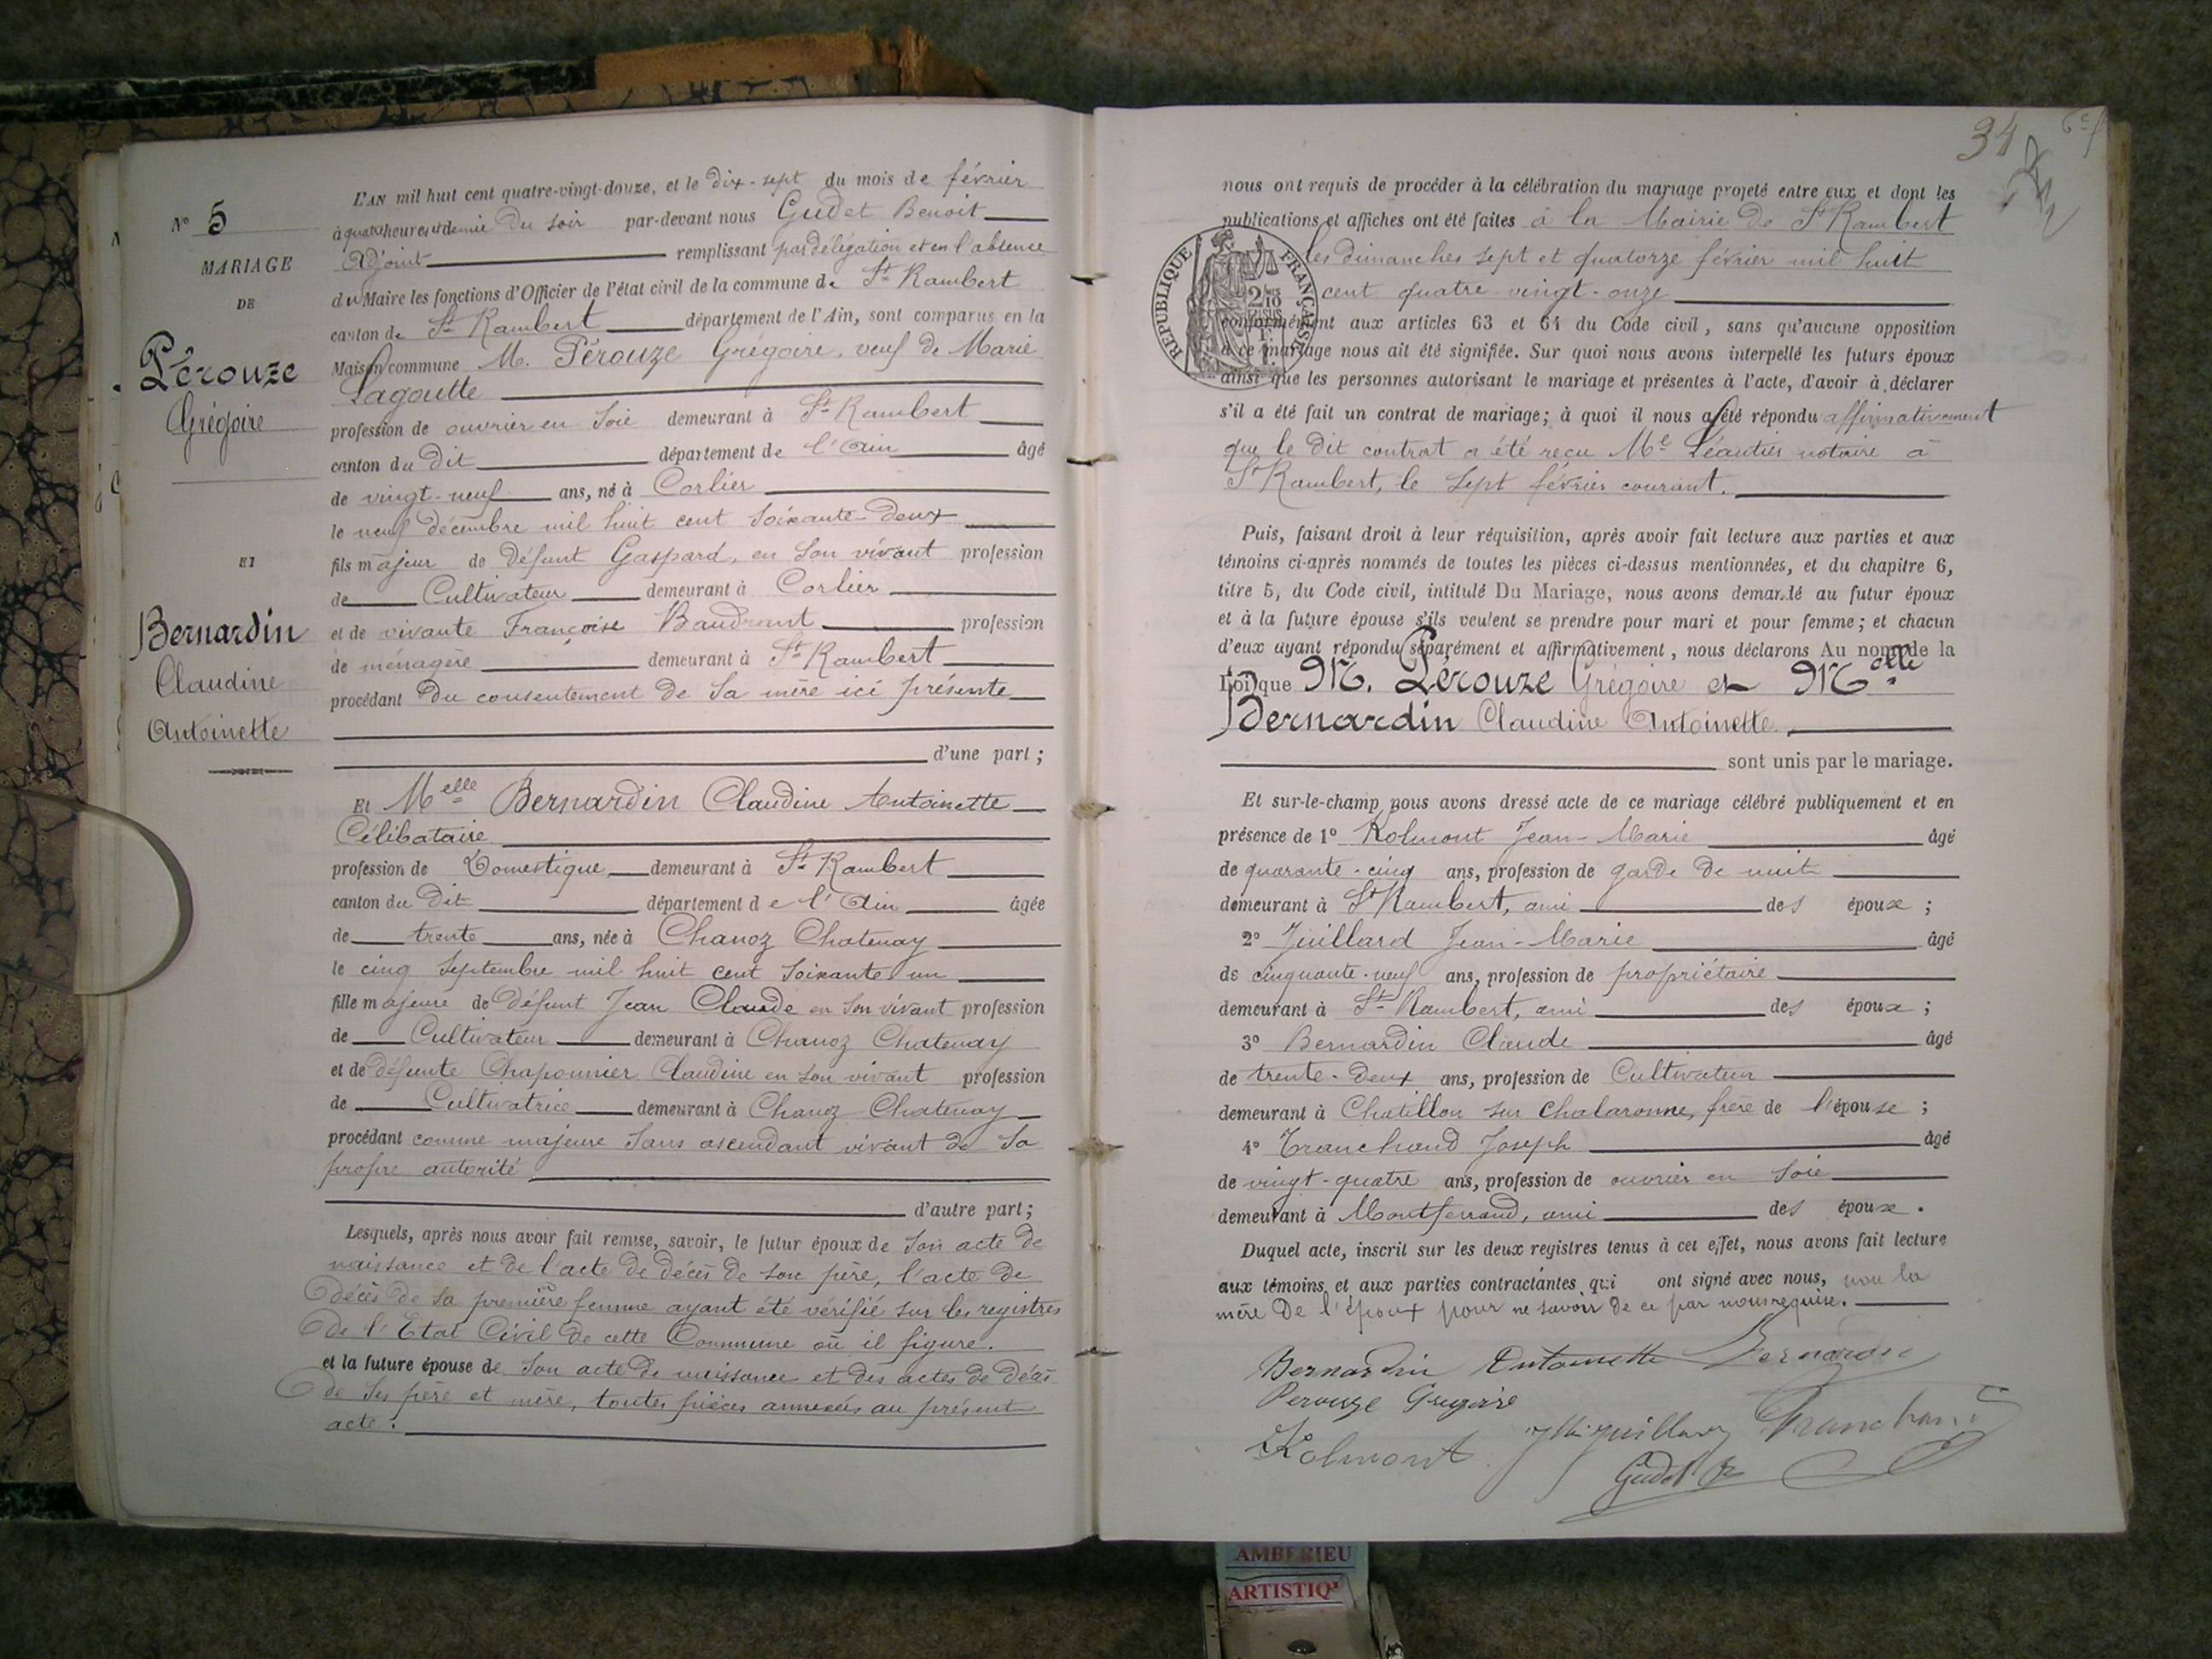 N° 5
MARIAGE
DE
Pérouze
Grégoire
ET
Bernardin
Claudine
Antoinette
L'AN mil huit cent quatre-vingt-douze, et le dix-sept du mois de février
à quatre heures et demie du soir par-devant nous Gudet Benoit
Adjoint remplissant par délégation et en l'absence
du Maire les fonctions d'Officier de l'état civil de la commune de St Rambert
canton de St Rambert département de l'Ain, sont comparus en la
Maison commune M. Pérouze Grégoire, veuf de Marie
Lagoutte
profession de ouvrier en soie demeurant à St Rambert
canton du dit département de l'Ain âgé
de vingt-neuf ans, né à Corlier
le neuf décembre mil huit cent soixante-deux
fils majeur de défunt Gaspard, en son vivant profession
de Cultivateur demeurant à Corlier
et de vivante Françoise Baudrant profession
de ménagère demeurant à St Rambert
procédant du consentement de sa mère ici présente
d'une part ;
Et Melle Bernardin Claudine Antoinette
Célibataire
profession de Domestique demeurant à St Rambert
canton du dit département de l'Ain âgée
de trente ans, née à Chanoz Chatenay
le cinq Septembre mil huit cent soixante un
fille majeure de défunt Jean Claude en son vivant profession
de Cultivateur demeurant à Chanoz Chatenay
et de défunte Chaponnier Claudine en son vivant profession
de Cultivatrice demeurant à Chanoz Chatenay
procédant comme majeure sans ascendant vivant de sa
propre autorité
d'autre part ;
Lesquels, après nous avoir fait remise, savoir, le futur époux de son acte de
naissance et de l'acte de décès de son père, l'acte de
décès de sa première femme ayant été vérifié sur les registres
de l'Etat Civil de cette Commune où il figure.
et la future épouse de son acte de naissance et des actes de décès
de ses père et mère, toutes pièces annexées au présent
acte.
34
nous ont requis de procéder à la célébration du mariage projeté entre eux et dont les
publications et affiches ont été faites à la Mairie de St Rambert
les dimanches sept et quatorze février mil huit
cent quatre-vingt-onze
RÉPUBLIQUE FRANÇAISE
conformément aux articles 63 et 64 du Code civil, sans qu'aucune opposition
à ce mariage nous ait été signifiée. Sur quoi nous avons interpellé les futurs époux
ainsi que les personnes autorisant le mariage et présentes à l'acte, d'avoir à déclarer
s'il a été fait un contrat de mariage; à quoi il nous a été répondu affirmativement
que le dit contrat a été reçu Me Léautier notaire à
St Rambert, le sept février courant.
Puis, faisant droit à leur réquisition, après avoir fait lecture aux parties et aux
témoins ci-après nommés de toutes les pièces ci-dessus mentionnées, et du chapitre 6,
titre 5, du Code civil, intitulé Du Mariage, nous avons demandé au futur époux
et à la future épouse s'ils veulent se prendre pour mari et pour femme; et chacun
d'eux ayant répondu séparément et affirmativement, nous déclarons Au nom de la
Loi que M. Pérouze Grégoire et Melle
Bernardin Claudine Antoinette
sont unis par le mariage.
Et sur-le-champ nous avons dressé acte de ce mariage célébré publiquement et en
présence de 1° Kolmont Jean-Marie âgé
de quarante-cinq ans, profession de garde de nuit
demeurant à St Rambert, ami des époux ;
2° Juillard Jean-Marie âgé
de cinquante-neuf ans, profession de propriétaire
demeurant à St Rambert, ami des époux ;
3° Bernardin Claude âgé
de trente-deux ans, profession de Cultivateur
demeurant à Chatillon sur Chalaronne, frère de l'épouse ;
4° Tranchand Joseph âgé
de vingt-quatre ans, profession de ouvrier en soie
demeurant à Montferrand, ami des époux.
Duquel acte, inscrit sur les deux registres tenus à cet effet, nous avons fait lecture
aux témoins et aux parties contractantes qui ont signé avec nous, non la
mère de l'époux pour ne savoir de ce par nous requise.
Bernardin Antoinette Bernardin
Perouze Gregoire
Kolmont Juillard Tranchand
Gudet
AMBERIEU
ARTISTIQ